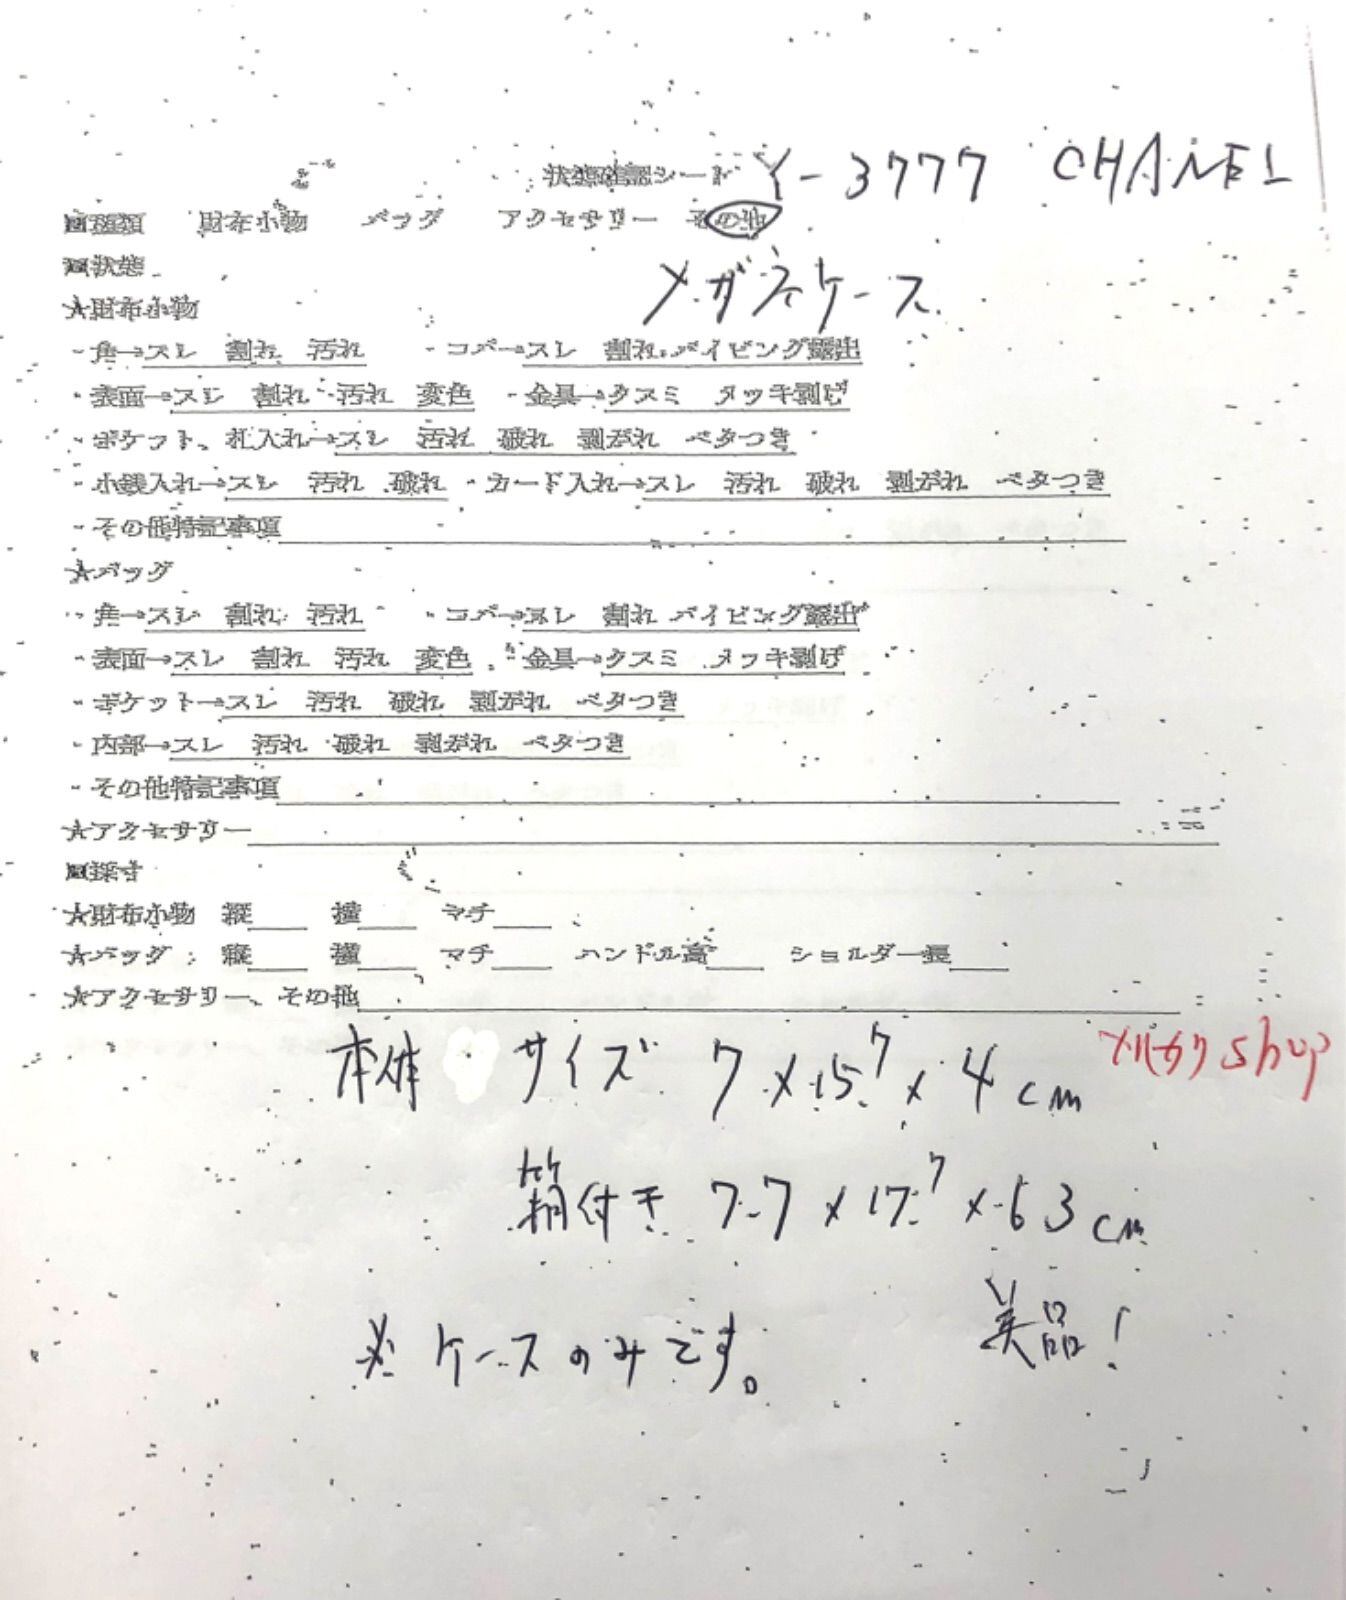 状態確認シート Y-3777 CHANEL
■種類 財布小物 バッグ アクセサリー その他
■状態
メガネケース
★財布小物
・角→スレ 割れ 汚れ ・コバ→スレ 割れ パイピング露出
・表面→スレ 割れ 汚れ 変色 ・金具→クスミ メッキ剥げ
・ポケット、札入れ→スレ 汚れ 破れ 剥がれ ベタつき
・小銭入れ→スレ 汚れ 破れ ・カード入れ→スレ 汚れ 破れ 剥がれ ベタつき
・その他特記事項
★バッグ
・角→スレ 割れ 汚れ ・コバ→スレ 割れ パイピング露出
・表面→スレ 割れ 汚れ 変色 ・金具→クスミ メッキ剥げ
・ポケット→スレ 汚れ 破れ 剥がれ ベタつき
・内部→スレ 汚れ 破れ 剥がれ ベタつき
・その他特記事項
★アクセサリー
■採寸
★財布小物 縦 横 マチ
★バッグ 縦 横 マチ ハンドル高 ショルダー長
★アクセサリー、その他
本体 サイズ 7×15.7×4cm メルカリshop
箱付き 7.7×17.7×6.3cm
美品!
※ケースのみです。